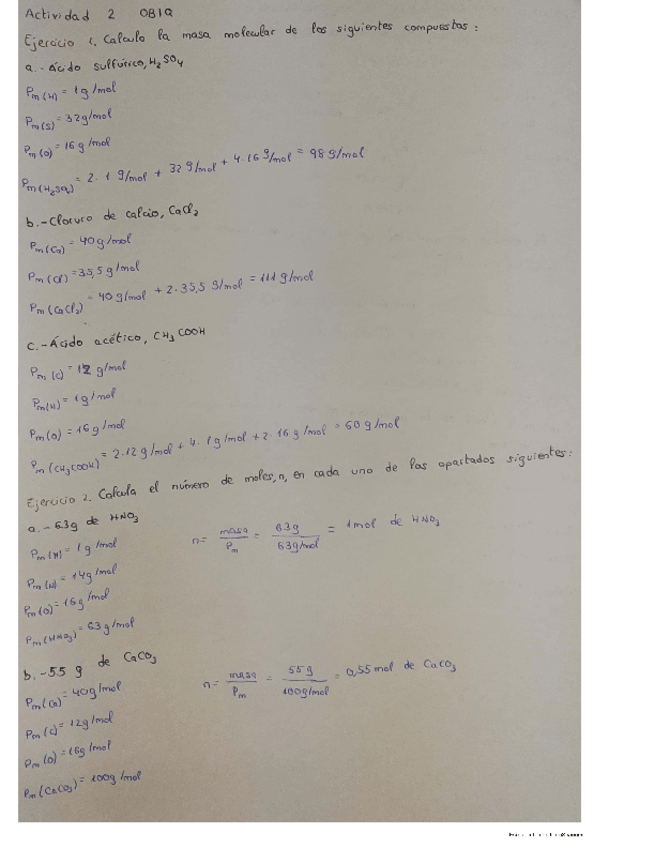 Actividad 2 OB1Q
Ejercicio 1. Calcula la masa molecular de los siguientes compuestos:
a.- Ácido sulfúrico, H₂SO₄
Pm(H) = 1g/mol
Pm(S) = 32g/mol
Pm(O) = 16g/mol
Pm(H₂SO₄) = 2·1 g/mol + 32 g/mol + 4·16 g/mol = 98 g/mol
b.- Cloruro de calcio, CaCl₂
Pm(Ca) = 40g/mol
Pm(Cl) = 35,5g/mol
Pm(CaCl₂) = 40g/mol + 2·35,5 g/mol = 111 g/mol
c.- Ácido acético, CH₃COOH
Pm(C) = 12 g/mol
Pm(H) = 1g/mol
Pm(O) = 16g/mol
Pm(CH₃COOH) = 2·12 g/mol + 4·1g/mol + 2·16 g/mol = 60 g/mol
Ejercicio 2. Calcula el número de moles, n, en cada uno de los apartados siguientes:
a.- 63g de HNO₃
n = masa/Pm = 63g/63g/mol = 1mol de HNO₃
Pm(H) = 1g/mol
Pm(N) = 14g/mol
Pm(O) = 16g/mol
Pm(HNO₃) = 63g/mol
b.- 55 g de CaCO₃
n = masa/Pm = 55g/100g/mol = 0,55mol de CaCO₃
Pm(Ca) = 40g/mol
Pm(C) = 12g/mol
Pm(O) = 16g/mol
Pm(CaCO₃) = 100g/mol